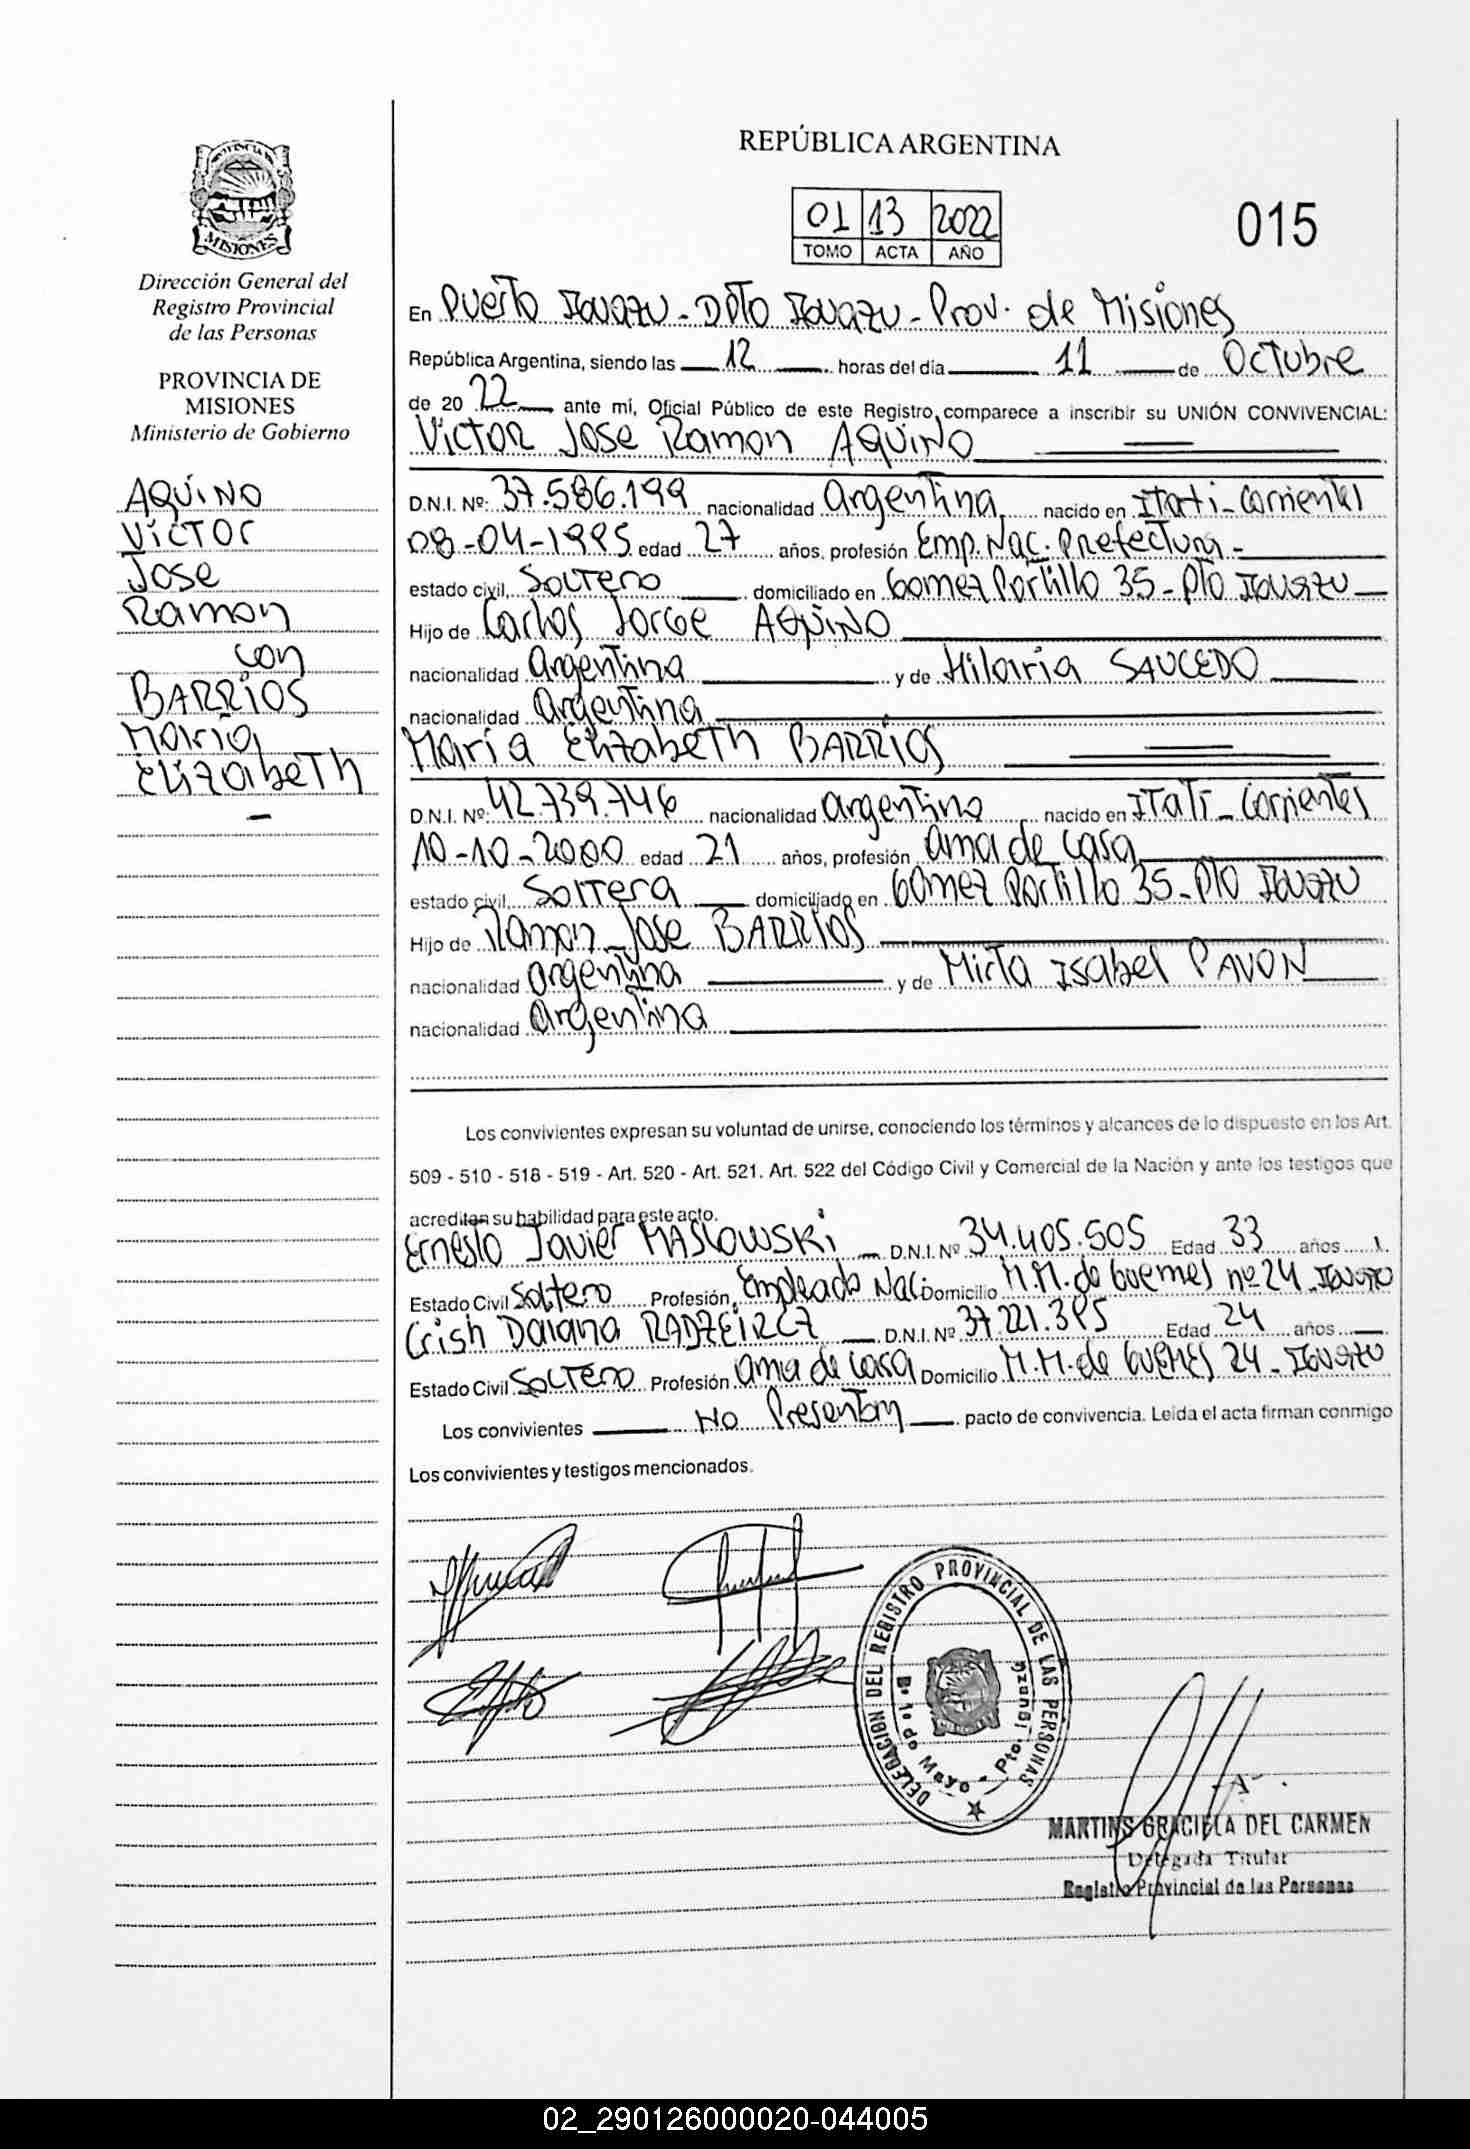 PROVINCIA DE
MISIONES
Dirección General del
Registro Provincial
de las Personas
PROVINCIA DE
MISIONES
Ministerio de Gobierno
AQUINO
VICTOR
Jose
Ramon
con
BARRIOS
Maria
ElizabeTh
REPÚBLICA ARGENTINA
01 13 2022
TOMO ACTA AÑO
015
En Puerto Iguazu - Dpto Iguazu - Prov. de Misiones
República Argentina, siendo las 12 horas del día 11 de Octubre
de 20 22 ante mí, Oficial Público de este Registro, comparece a inscribir su UNIÓN CONVIVENCIAL:
Victor Jose Ramon AQUINO
D.N.I. Nº: 37.586.199 nacionalidad Argentina nacido en Itati - Corrientes
08-04-1995 edad 27 años, profesión Emp. Nac. Prefectura -
estado civil, Soltero domiciliado en Gomez Portillo 35 - Pto Iguazu
Hijo de Carlos Jorge AQUINO
nacionalidad Argentina y de Hilaria SAUCEDO
nacionalidad Argentina
María Elizabeth BARRIOS
D.N.I. Nº: 42.739.746 nacionalidad Argentina nacido en Itati - Corrientes
10-10-2000 edad 21 años, profesión Ama de casa
estado civil, Soltera domiciliado en Gomez Portillo 35 - Pto Iguazu
Hijo de Ramon Jose BARRIOS
nacionalidad Argentina y de Mirta Isabel PAVON
nacionalidad Argentina
Los convivientes expresan su voluntad de unirse, conociendo los términos y alcances de lo dispuesto en los Art.
509 - 510 - 518 - 519 - Art. 520 - Art. 521. Art. 522 del Código Civil y Comercial de la Nación y ante los testigos que
acrediten su habilidad para este acto.
Ernesto Javier MASLOWSKI D.N.I. Nº 34.405.505 Edad 33 años
Estado Civil Soltero Profesión, Empleado Nac. Domicilio M.M. de Guemes nº 24 - Iguazu
Crish Daiana D.N.I. Nº 37.221.395 Edad 24 años
Estado Civil Soltero Profesión Ama de casa Domicilio M.M. de Guemes 24 - Iguazu
Los convivientes No Presentan pacto de convivencia. Leída el acta firman conmigo
Los convivientes y testigos mencionados.
DELEGACION DEL REGISTRO PROVINCIAL DE LAS PERSONAS
Bº 1º de Mayo - Pto. Iguazú
MARTINS GRACIELA DEL CARMEN
Delegada Titular
Registro Provincial de las Personas
02_290126000020-044005